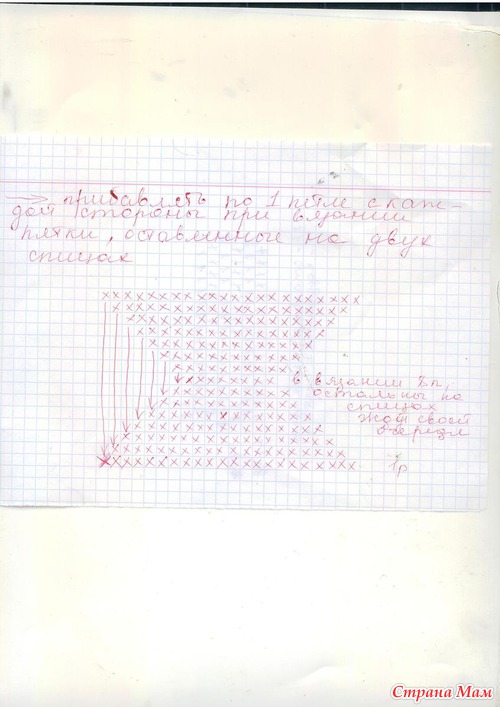 → прибавлять по 1 петле с каж-
дой стороны при вязании
пятки, оставленное на двух
спицах
в вязании 8 п,
остальны на
спицах
ждут своей
очереди
1р
Страна Мам